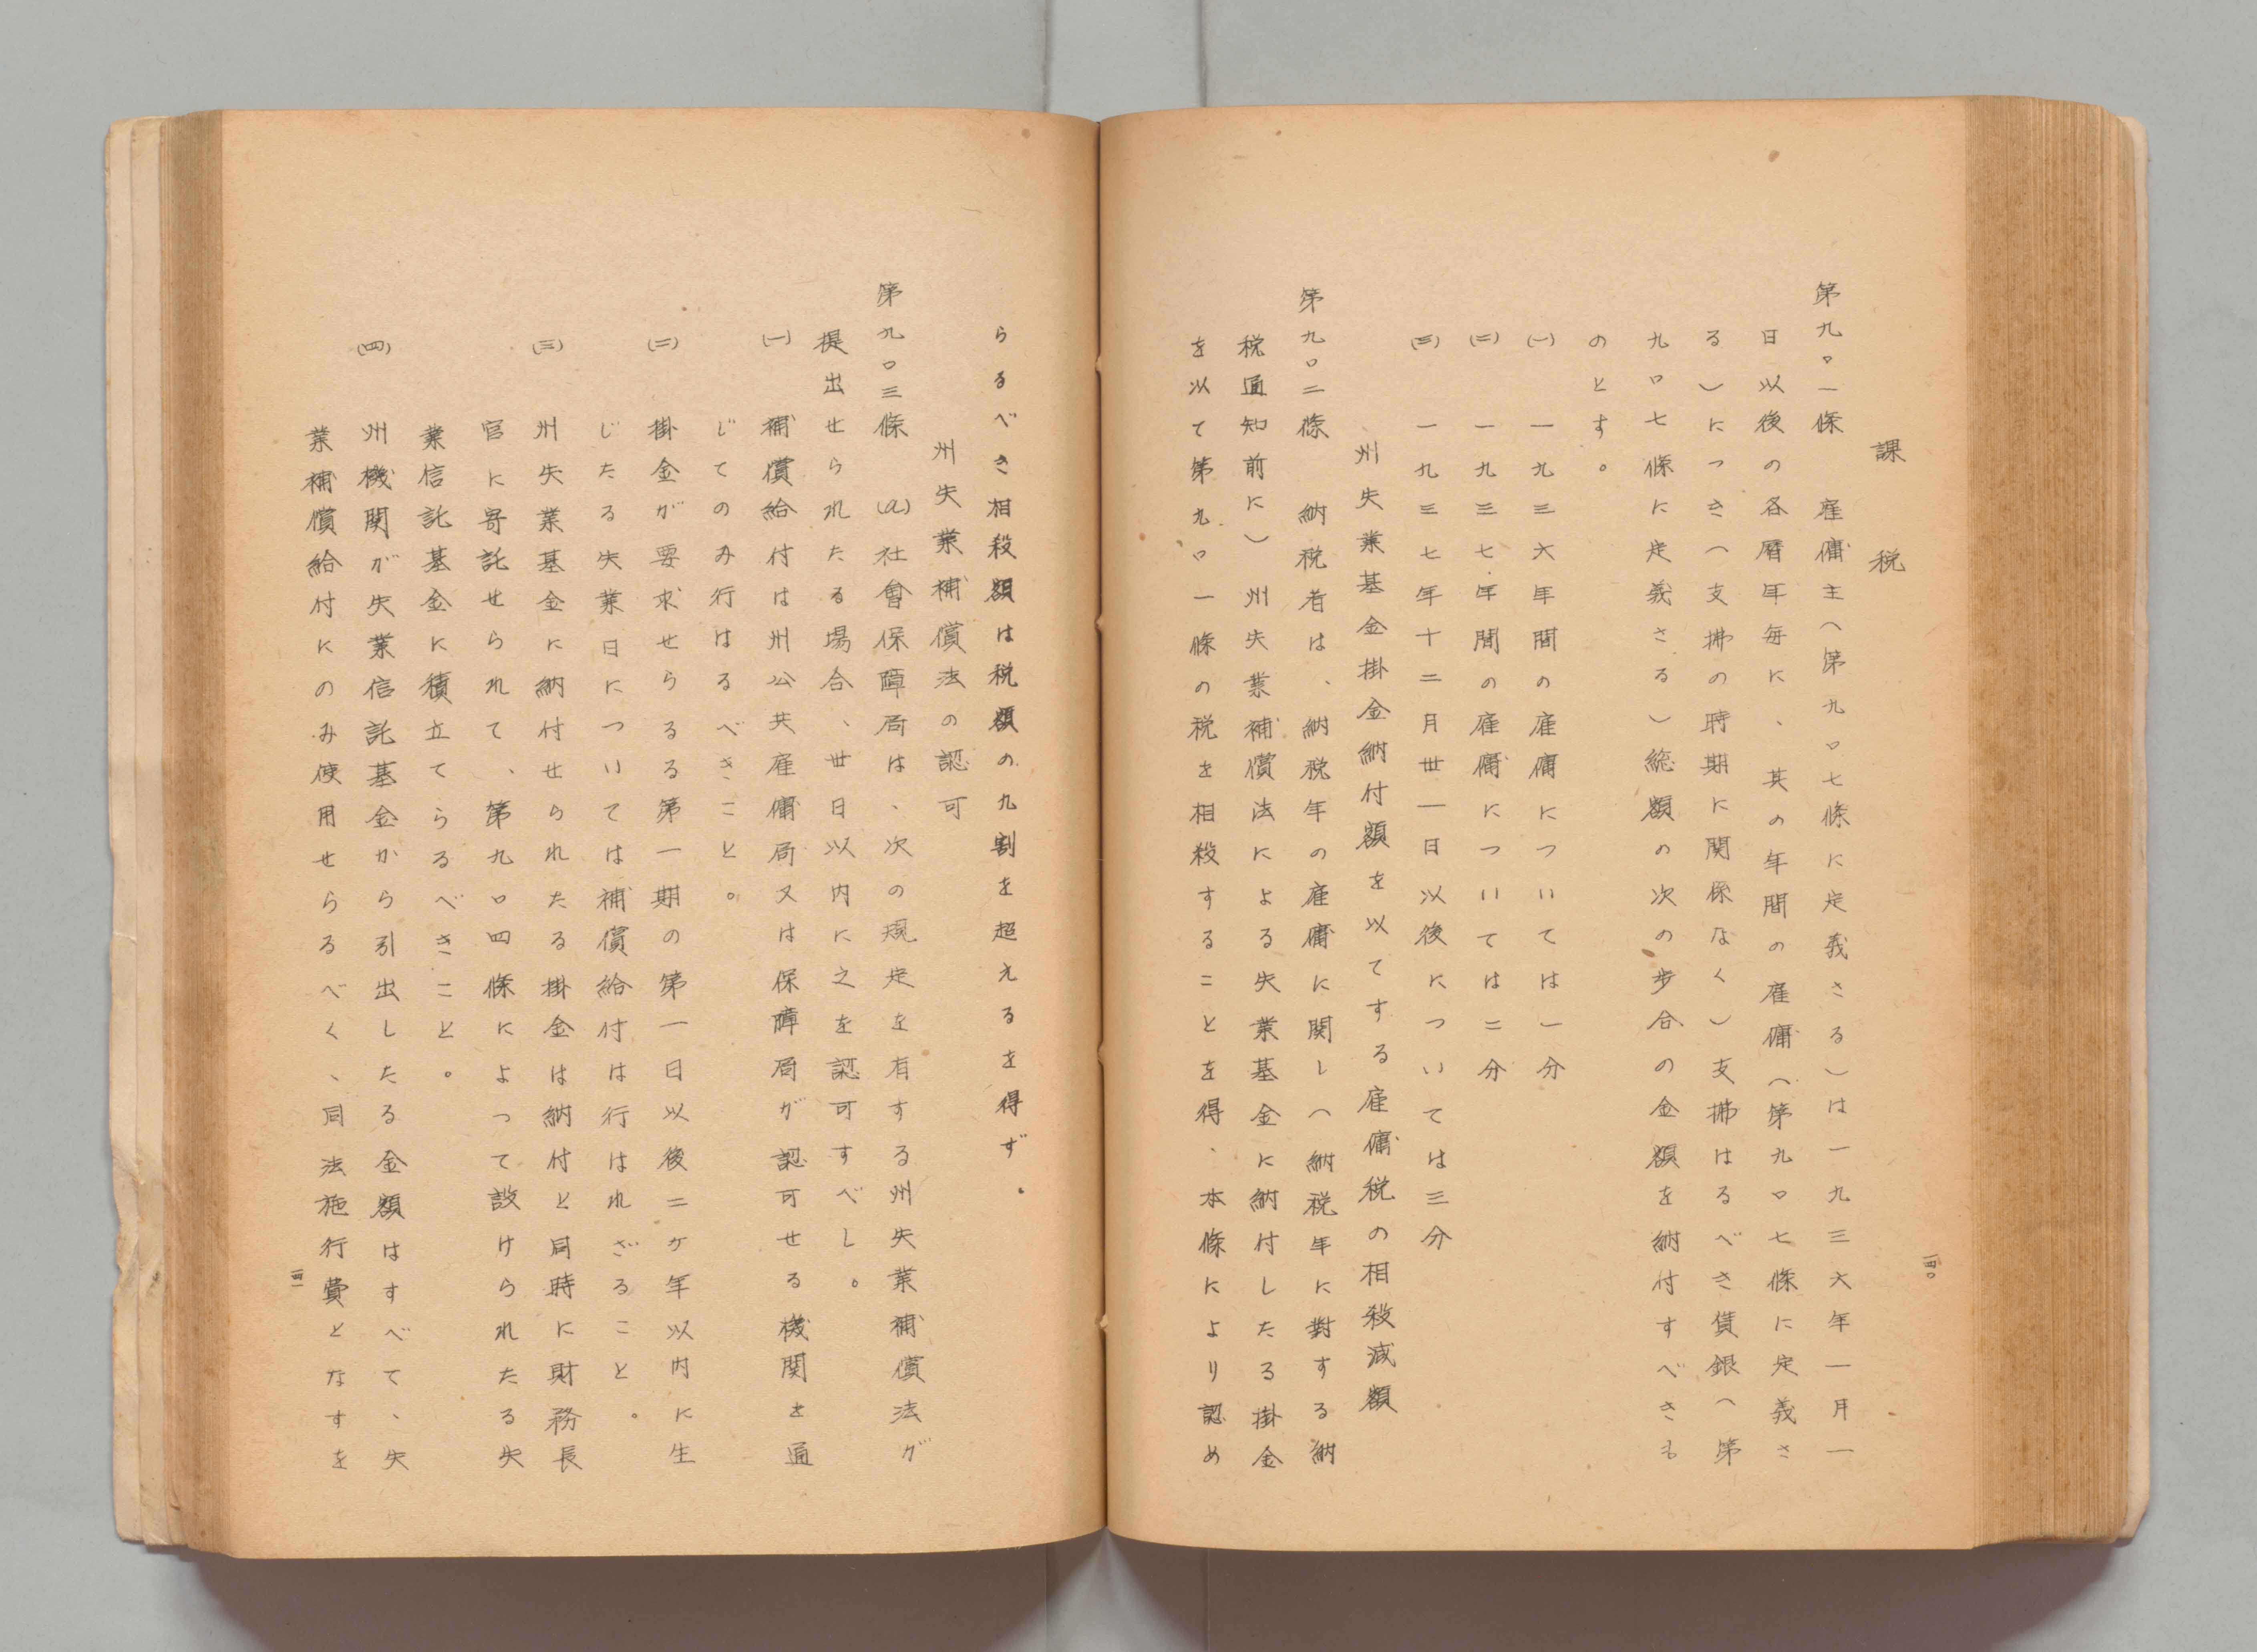 課税
第九〇一條　雇傭主（第九〇七條に定義さる）は一九三六年一月一
日以後の各暦年毎に、其の年間の雇傭（第九〇七條に定義さ
る）につき（支拂の時期に関係なく）支拂はるべき賃銀（第
九〇七條に定義さる）総額の次の歩合の金額を納付すべきも
のとす。
(一)　一九三六年間の雇傭については一分
(二)　一九三七年間の雇傭については二分
(三)　一九三七年十二月卅一日以後については三分
州失業基金掛金納付額を以てする雇傭税の相殺減額
第九〇二條　納税者は、納税年の雇傭に関し（納税年に對する納
税通知前に）州失業補償法による失業基金に納付したる掛金
を以て第九〇一條の税を相殺することを得、本條により認め
一四〇
らるべき相殺額は税額の九割を超えるを得ず.
州失業補償法の認可
第九〇三條　(a)社會保障局は、次の規定を有する州失業補償法が
提出せられたる場合、卅日以内に之を認可すべし。
(一)　補償給付は州公共雇傭局又は保障局が認可せる機関を通
じてのみ行はるべきこと。
(二)　掛金が要求せらるる第一期の第一日以後二ヶ年以内に生
じたる失業日については補償給付は行はれざること。
(三)　州失業基金に納付せられたる掛金は納付と同時に財務長
官に寄託せられて、第九〇四條によって設けられたる失
業信託基金に積立てらるべきこと。
(四)　州機関が失業信託基金から引出したる金額はすべて、失
業補償給付にのみ使用せらるべく、同法施行費となすを
一四一